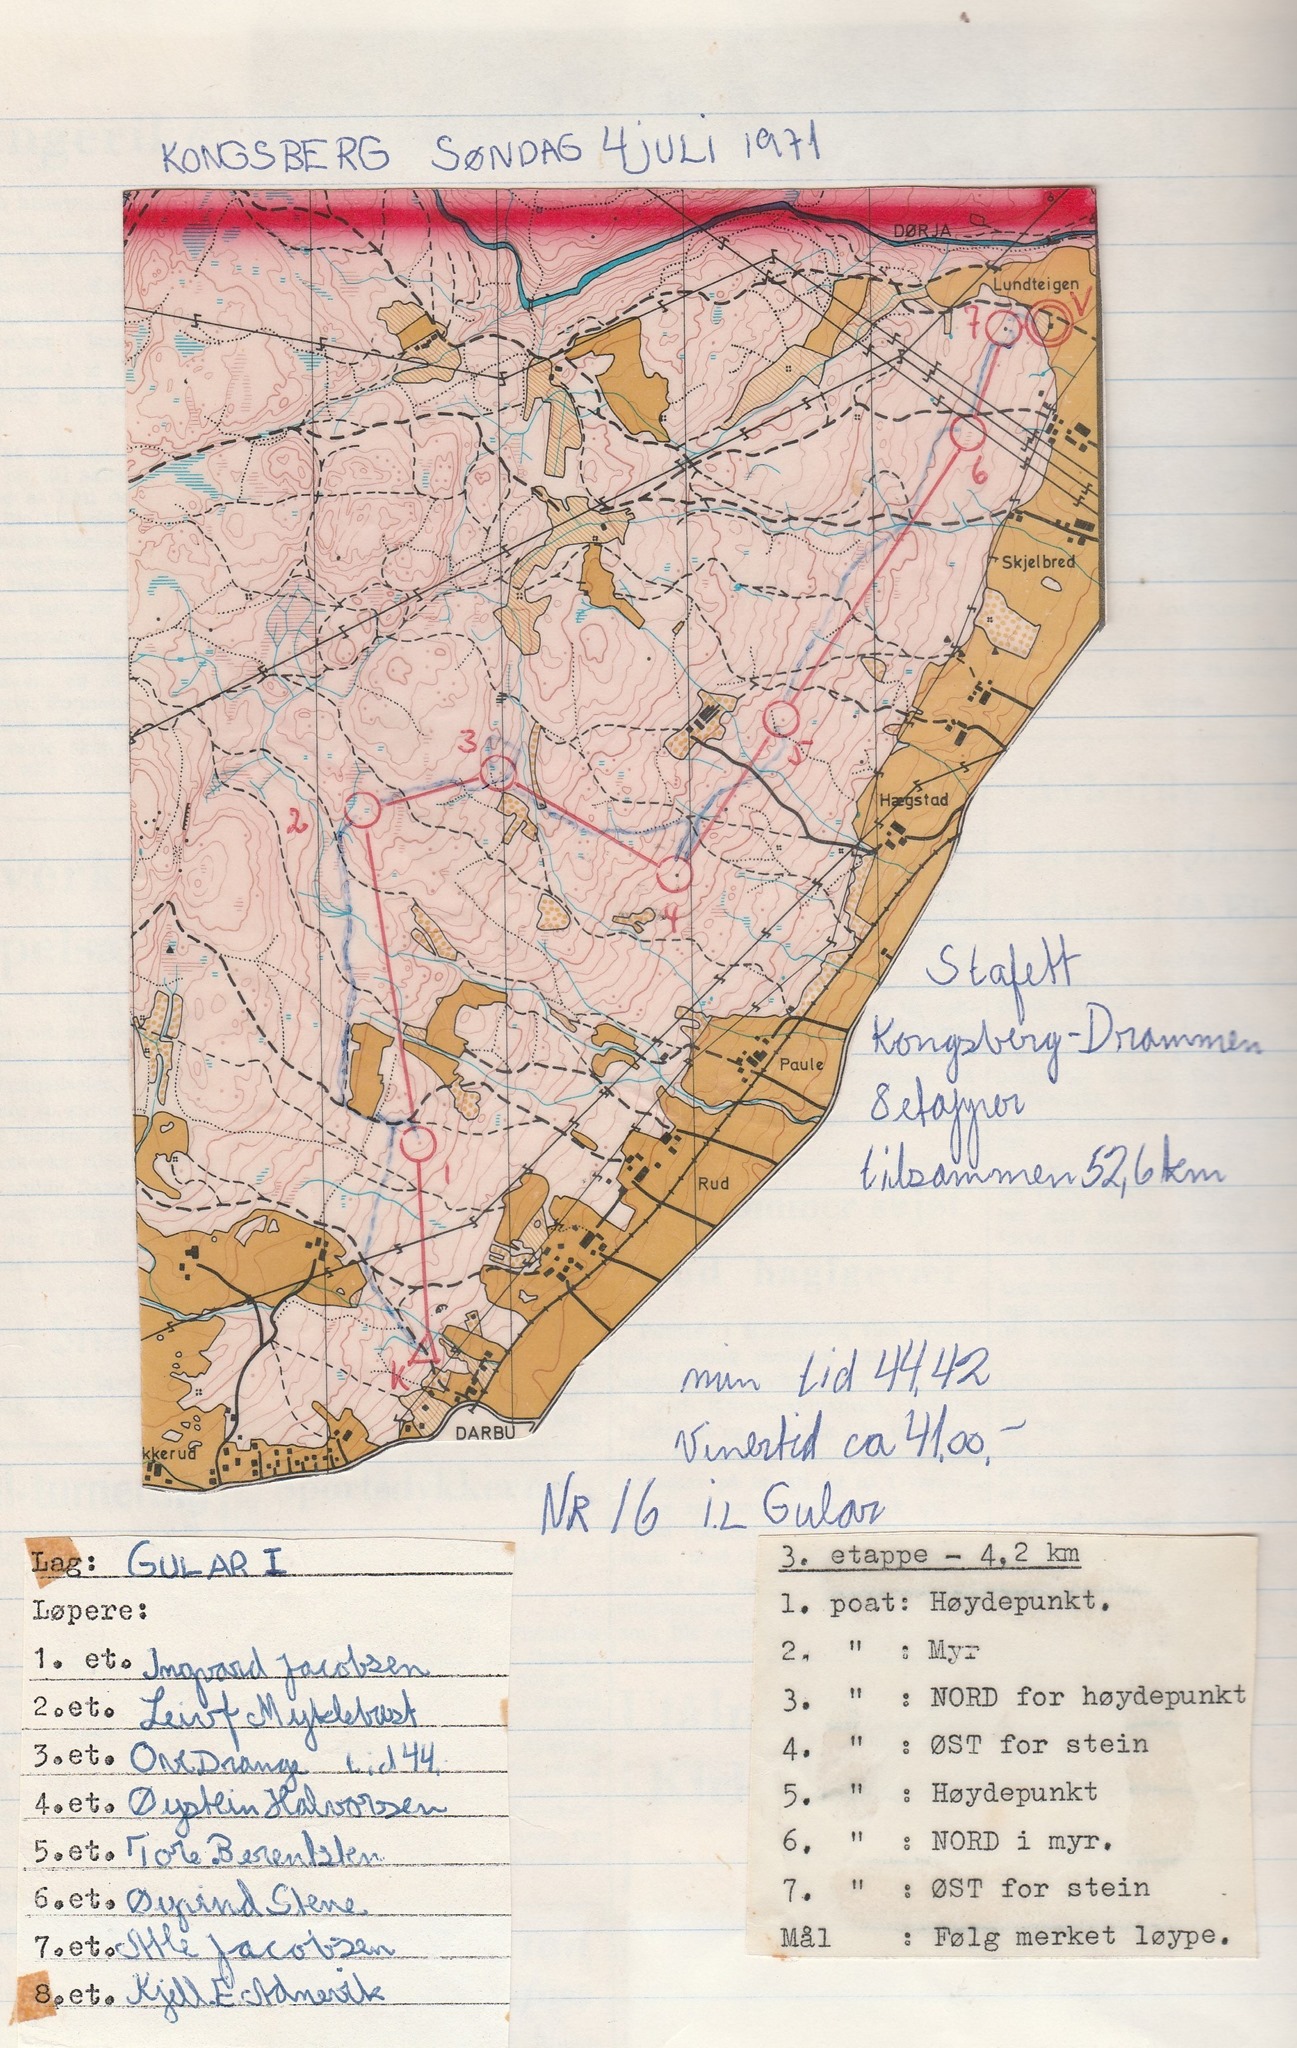 KONGSBERG SØNDAG 4 JULI 1971
DØRJA
Lundteigen
7
V
6
Skjelbred
3
5
2
Hægstad
4
Stafett
Kongsberg-Drammen
8 etapper
tilsammen 52,6 km
Paule
1
Rud
K
DARBU
kkerud
min tid 44,42
Vinertid ca 41,00,-
NR 16 i.L Gular
Lag: GULAR I
Løpere:
1. et. Ingvard Jacobsen
2.et. Leivf Myklebust
3.et. Ove Drange tid 44,
4.et. Øystein Halvorsen
5.et. Tore Berentsen
6.et. Øyvind Stene
7.et. Atle Jacobsen
8.et. Kjell E Adnevik
3. etappe - 4,2 km
1. poat: Høydepunkt.
2. " : Myr
3. " : NORD for høydepunkt
4. " : ØST for stein
5. " : Høydepunkt
6. " : NORD i myr.
7. " : ØST for stein
Mål : Følg merket løype.